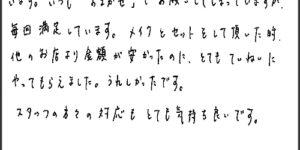 毎回満足しています。メイクとセットをして頂いた時、
他のお店より金額が安かったのに、とてもていねいに
やってもらえました。うれしかったです。
スタッフの方々の対応もとても気持ち良いです。